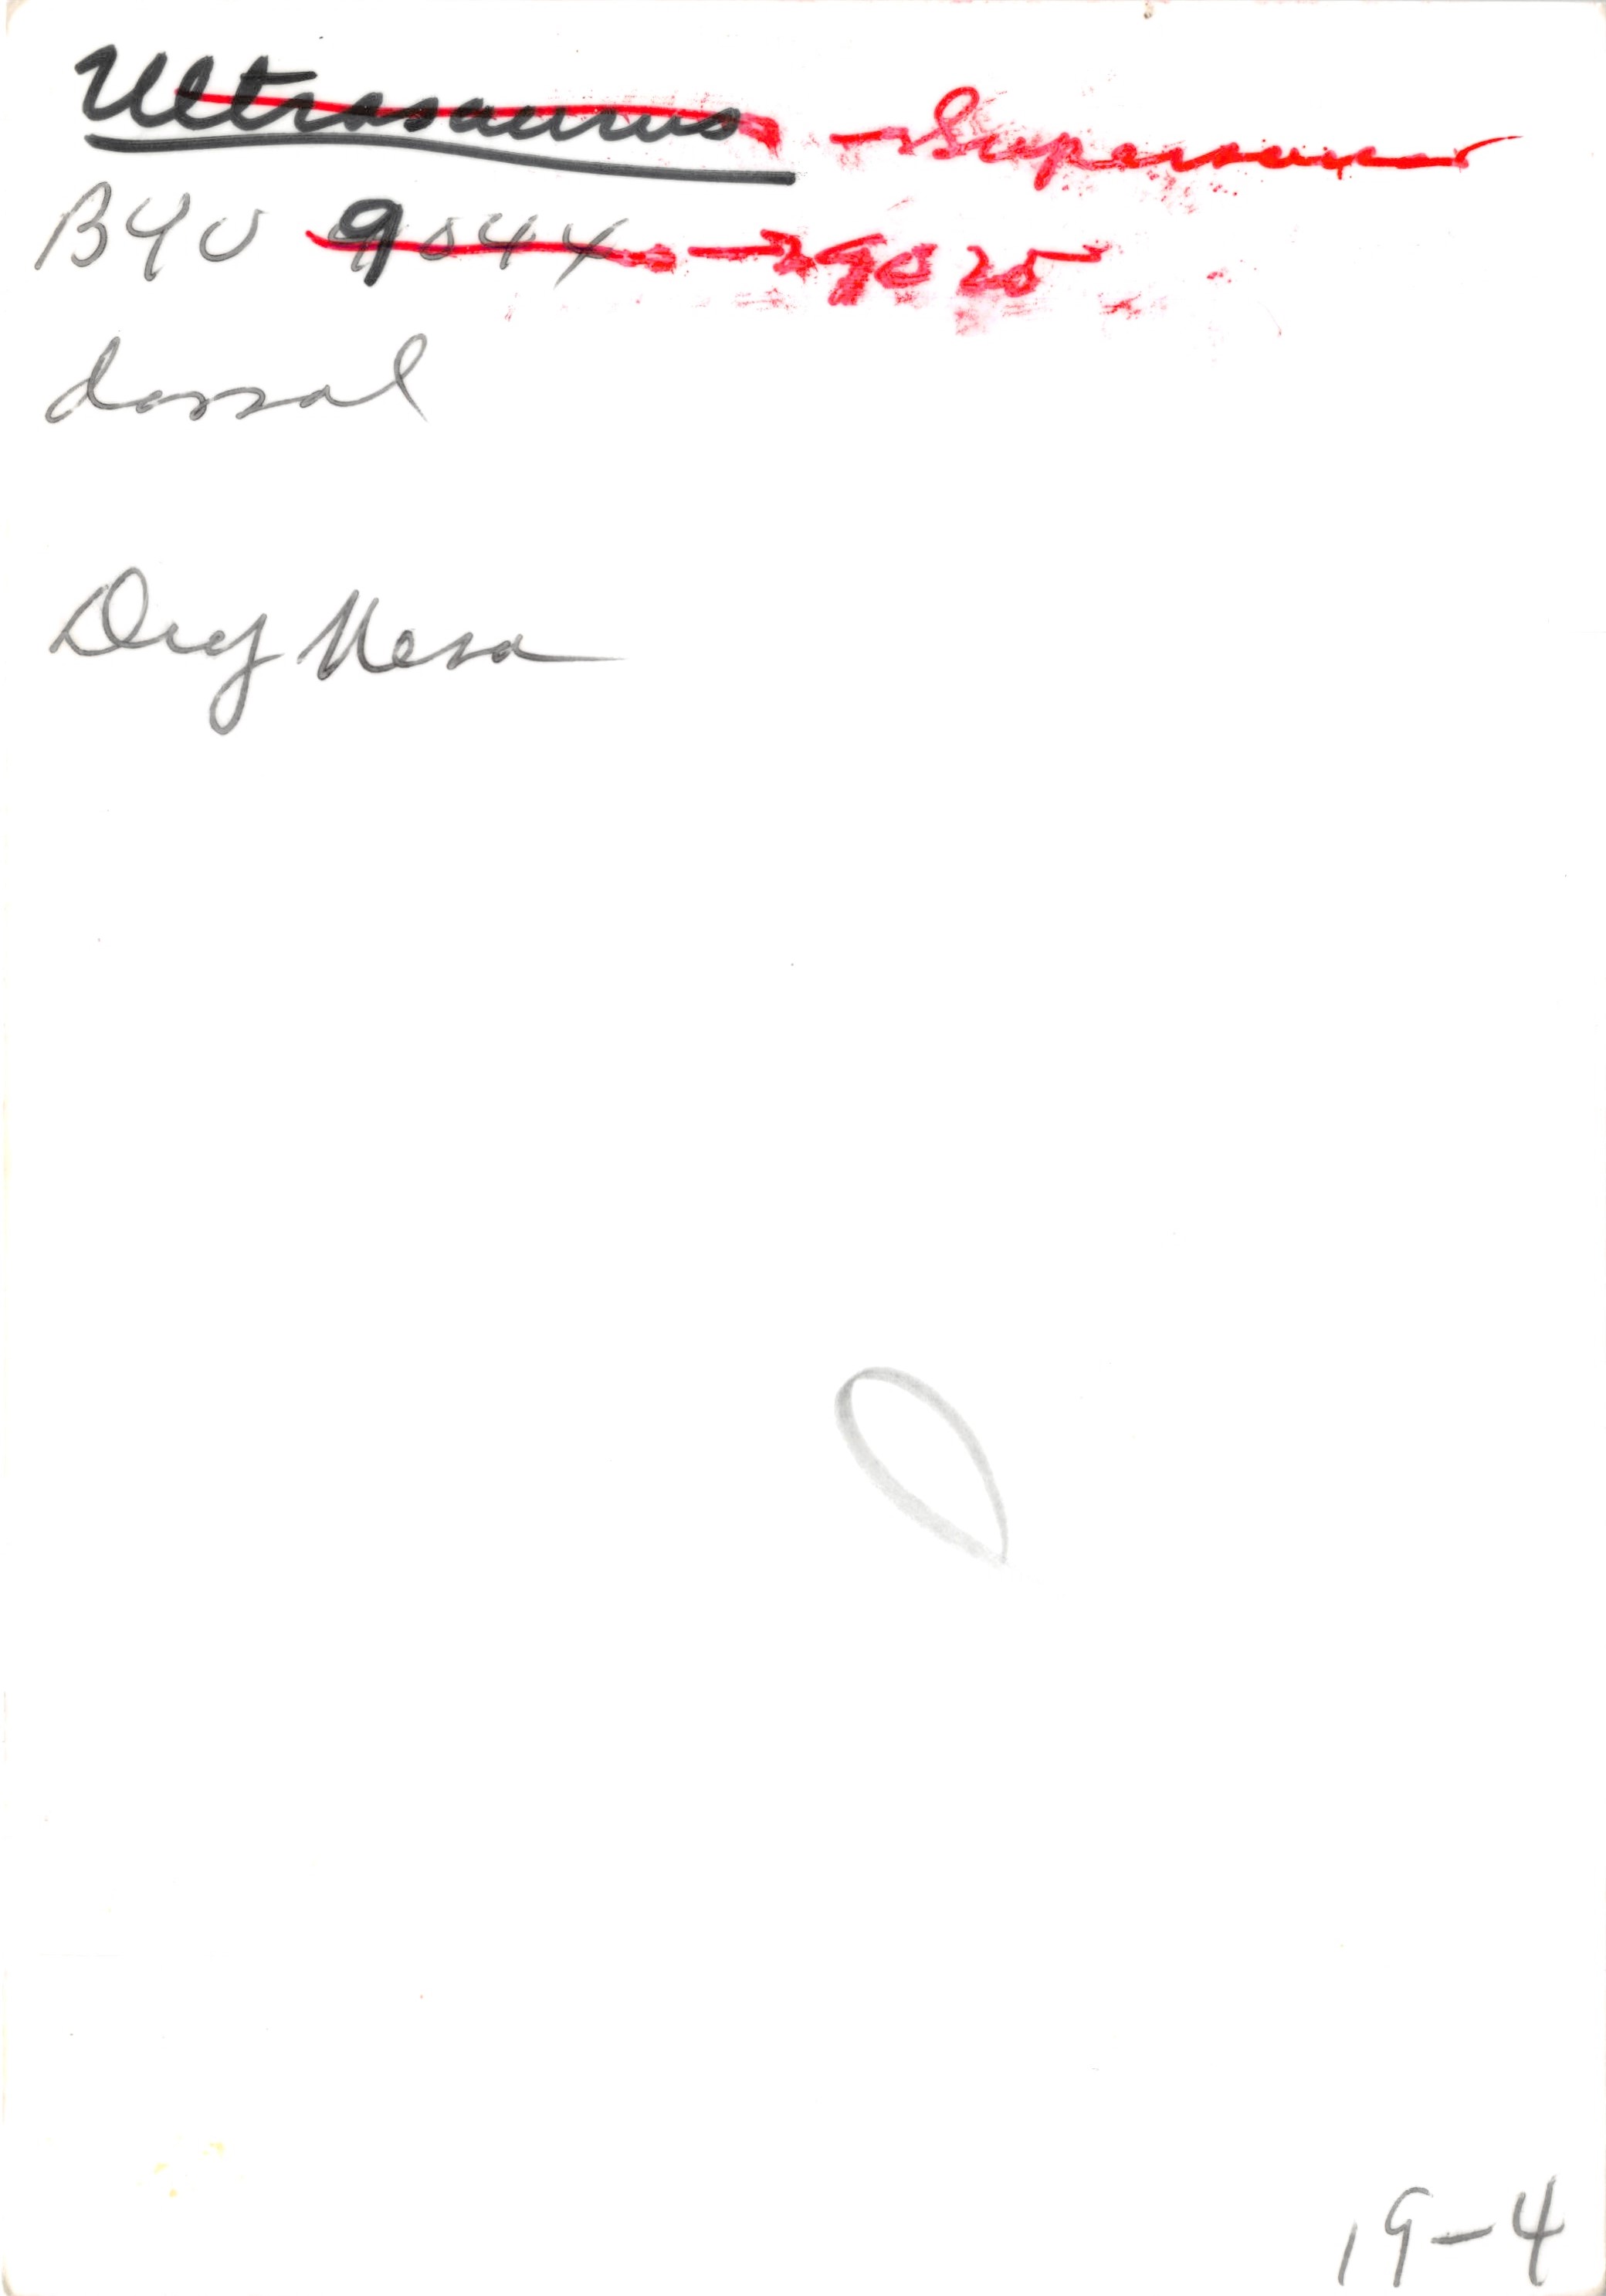 Ultrasaurus → Supersaurus
BYU 9044 → 9025
dorsal
Dry Mesa
19-4